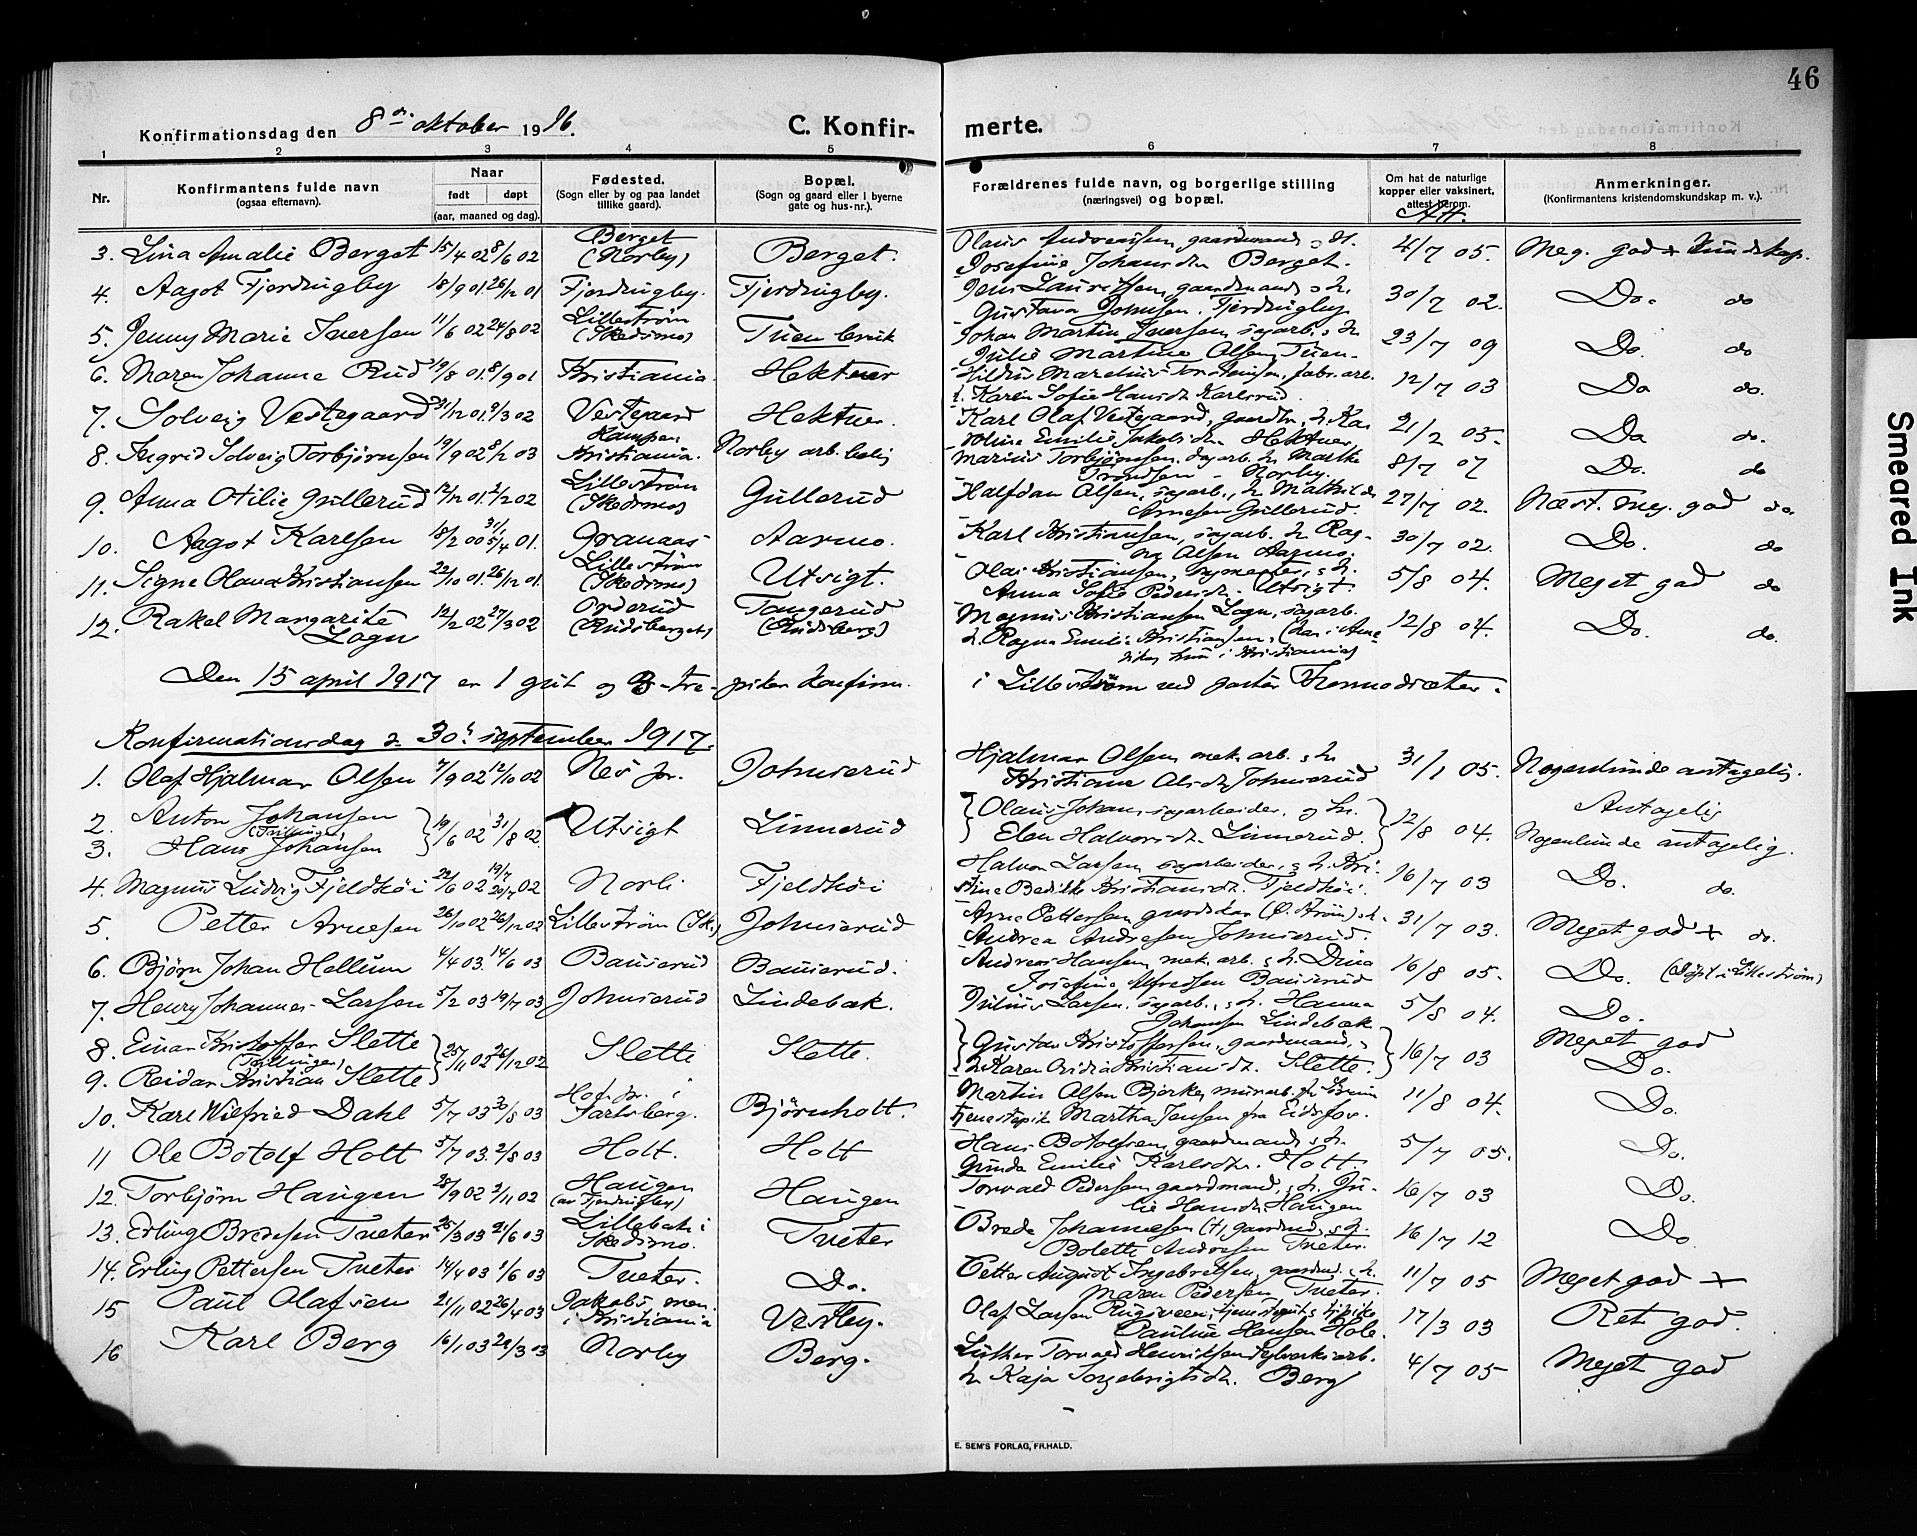 46
Konfirmationsdag den 8de oktober 1916. C. Konfirmerte.
1 2 3 4 5 6 7 8
Nr. Konfirmantens fulde navn (ogsaa efternavn). Naar født døpt (aar, maaned og dag). Fødested. (Sogn eller by og paa landet tillike gaard). Bopæl. (Sogn og gaard eller i byerne gate og hus-nr.). Forældrenes fulde navn, og borgerlige stilling (næringsvei) og bopæl. Om hat de naturlige kopper eller vaksinert, attest herom. Anmerkninger. (Konfirmantens kristendomskundskap m. v.).
Att.
3. Lina Amalie Berget 15/4 02 8/6 02 Berget (Norby) Berget. Olaus Andreassen, gaardmand, o. h. Josefine Johansdtr. Berget. 4/7 05. Meg. god + kundskap.
4. Aagot Fjerdingby 18/9 01. 26/12 01 Fjerdingby. Fjerdingby. Jens Lauritsen, gaardmand, o h. Gustava Johnsen. Fjerdingby 30/7 02. Do. do
5. Jenny Marie Iversen 11/6 02 24/8 02 Lillestrøm (Skedsmo) Tuen bruk Johan Martin Iversen, sagarb. o h. Julie Martine Olsen, Tuen. 23/7 09 Do. do
6. Maren Johanne Rud 19/8 01. 8/9 01 Kristiania. Hektner Marelius Torstensen, fabr. arb. Karen Sofie Hansdtr. Karlsrud. 12/7 03 Do do.
7. Solveig Vestgaard 31/12 01. 9/3 02 Vestgaard Hektner. Karl Olaf Vestgaard, gaardbr., h. Karoline Emilie Jakobsdtr. Hektner. 21/2 05. Do do.
8. Ingrid Solveig Torbjørnsen 19/9 02 8/2 03 Kampen Kristiania. Norby arb. bolig Marius Torbjørnsen, dagarb. h. Marthe Trondsen - Norby. 8/7 07 Do. do
9. Anna Otilie Gullerud 17/12 01. 2/2 02 Lillestrøm (Skedsmo) Gullerud Halfdan Olsen, sagarb., h. Mathilde Arnesen Gullerud. 27/7 02. Næst. meg. god do.
10. Aagot Karlsen 18/2 00 31/5/4 01. Granaas Aarmo. Karl Kristiansen, sagarb. h. Ragna Olsen Aarmo. 30/7 02. Do. do
11. Signe Olava Kristiansen 22/10 01. 26/12 01. Lillestrøm (Skedsmo) Utsigt. Olai Kristiansen, o h. Anna Sofie Pedersdt. Utsigt. 5/8 04. Meget god do
12. Rakel Margarite Logn 12/2 02 27/3 02 Orderud (Rudsberget) Tangerud (Rudsberg) Magnus Kristiansen Logn, sagarb. h. Ragna Emilie Kristiansen, (han i Amerika, hun i Kristiania) 12/8 04. Do. do.
Den 15 april 1917 er 1 gut og 3 - tre - piker konfirm. i Lillestrøm ved pastor
Konfirmationsdag d. 30' september 1917.
1. Olaf Hjalmar Olsen 7/9 02 12/10 02 Nes pr. Johnsrud Hjalmar Olsen mek. arb. o h. Kristiane Olsdt. Johnsrud 31/1 05. Nogenlunde antagelig.
2. Anton Johansen (Tvillinger) 19/6 02 31/8 02. Utsigt Linnerud Olaus Johans, sagarbeider, og h. Elen Halvorsdt. Linnerud. 12/8 04. Antagelig
3. Hans Johansen Nogenlunde antagelig.
4. Magnus Ludvig Fjeldhøi 22/6 02 19/7 20/7 02 Norli Fjeldhøi Halvor Larsen, sagarbeider, o h. Kristine Bedikke Kristiansdt. Fjeldhøi. 16/7 03 Do. do.
5. Petter Arnesen 26/10 02 26/12 02 Lillestrøm (Sk.) Johnsrud Arne Pettersen gaardskar (Ø. Strøm) h. Andrea Andresen Johnsrud. 31/7 03. Meget god + do.
6. Bjørn Johan Hellum 4/4 03. 14/6 03 Bauserud Bauserud. Andreas Hansen, mek. arb. o h. Dina Josefine Alfredsen Bauserud 16/8 05. Do. (Døpt i Lillestrøm)
7. Henry Johannes Larsen 5/2 03 19/7 03 Johnsrud Lindebak. Julius Larsen, sagarb., o h. Hanna Johansen Lindebæk 5/8 04. Do.
8. Einar Kristoffer Slette (Tvillinger) 25/11 02 26/12 02 Slette Slette. Gustav Kristoffersen, gaardmand, o h. Karen Ovidia Kristiansdt. Slette. 16/7 03 Meget god
9. Reidar Kristian Slette Do.
10. Karl Wilfried Dahl 5/7 03 30/8 03 Hof pr. i Jarlsberg. Bjørnholt. Martin Olsen Bjerke, murarb. fra tjenestepik. Martha Jensen fra Eidsfos. 11/8 04. Do.
11 Ole Botolf Holt 5/7 03. 2/8 03 Holt. Holt Hans Botolfsen, gaardmand, o h. Gunda Emilie Karlsdtr. Holt. 5/7 05. Do.
12. Torbjørn Haugen 28/9 02 2/11 02 Haugen (av Fjerdingby) Haugen Torvald Pedersen gaardmand, o h. Julie Hansdt. Haugen 16/7 03 Do.
13. Erling Bredesen Tveter 25/3 03 21/6 03 Lillebæk i Skedsmo. Tveter Brede Johannesen (†), gaardmd, o h. Bolette Andresen Tveter. 16/7 12 Do
14. Erling Pettersen Tveter 14/4 03 1/6 03 Tveter. Do. Petter August Ingebretsen, gaardmd. o h. Maren Pedersen Tveter. 11/7 05 Meget god +
15 Paul Olafsen 21/11 02 26/4 03 Jakobs men. i Kristiania Vestby. Olaf Larsen tjenestegut o tj.pike Pauline Hansen Hole. 17/3 03 Ret god.
16 Karl Berg 16/1 03 29/3 03 Norby Berg. Luther Torvald Henriksen h. Kaja Ingebrigtsdt. Berg 4/7 05 Meget god
E. SEM'S FORLAG, FR.HALD.
Smeared Ink